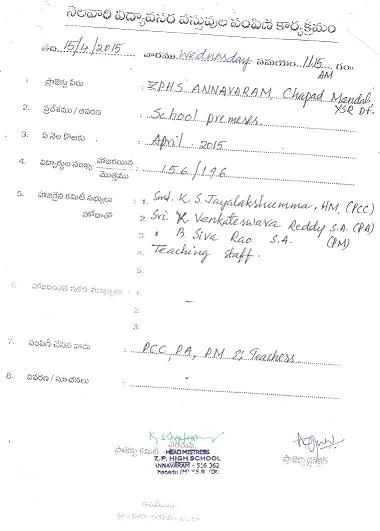 నెలవారి విద్యావసర వస్తువుల పంపిణి కార్యక్రమం
తేది 15/4/2015 వారము Wednesday సమయం 11:15 గం॥
AM
1 ప్రాజెక్టు పేరు : ZPHS ANNAVARAM, Chapad Mandal
YSR Dt.
2. ప్రదేశము / ఆవరణ : School premeses
3. ఏ నెల కొఱకు : April. 2015
4. విద్యార్థుల సంఖ్య హాజరయిన / మొత్తము : 156/196
5. హాజరైన కమిటీ సభ్యులు : 1. Smt. K. S. Jayalakshumma, HM, (PCC)
హోదాతో 2. Sri. K Venkateswara Reddy S.A. (PA)
3. " B Siva Rao S.A. (PM)
4. Teaching staff.
5.
6. హాజరయిన ఇతర : 1. -
2.
3.
7. పంపిణీ చేసిన వారు : PCC, PA, PM & Teachers
8. వివరణ / సూచనలు : -
ప్రాజెక్టు కమిటీ ఛైర్మెన్
HEADMISTRESS
Z.P. HIGH SCHOOL
ANNAVARAM - 516 362
Chapadu (M) Y.S.R. Dt.
ప్రాజెక్టు